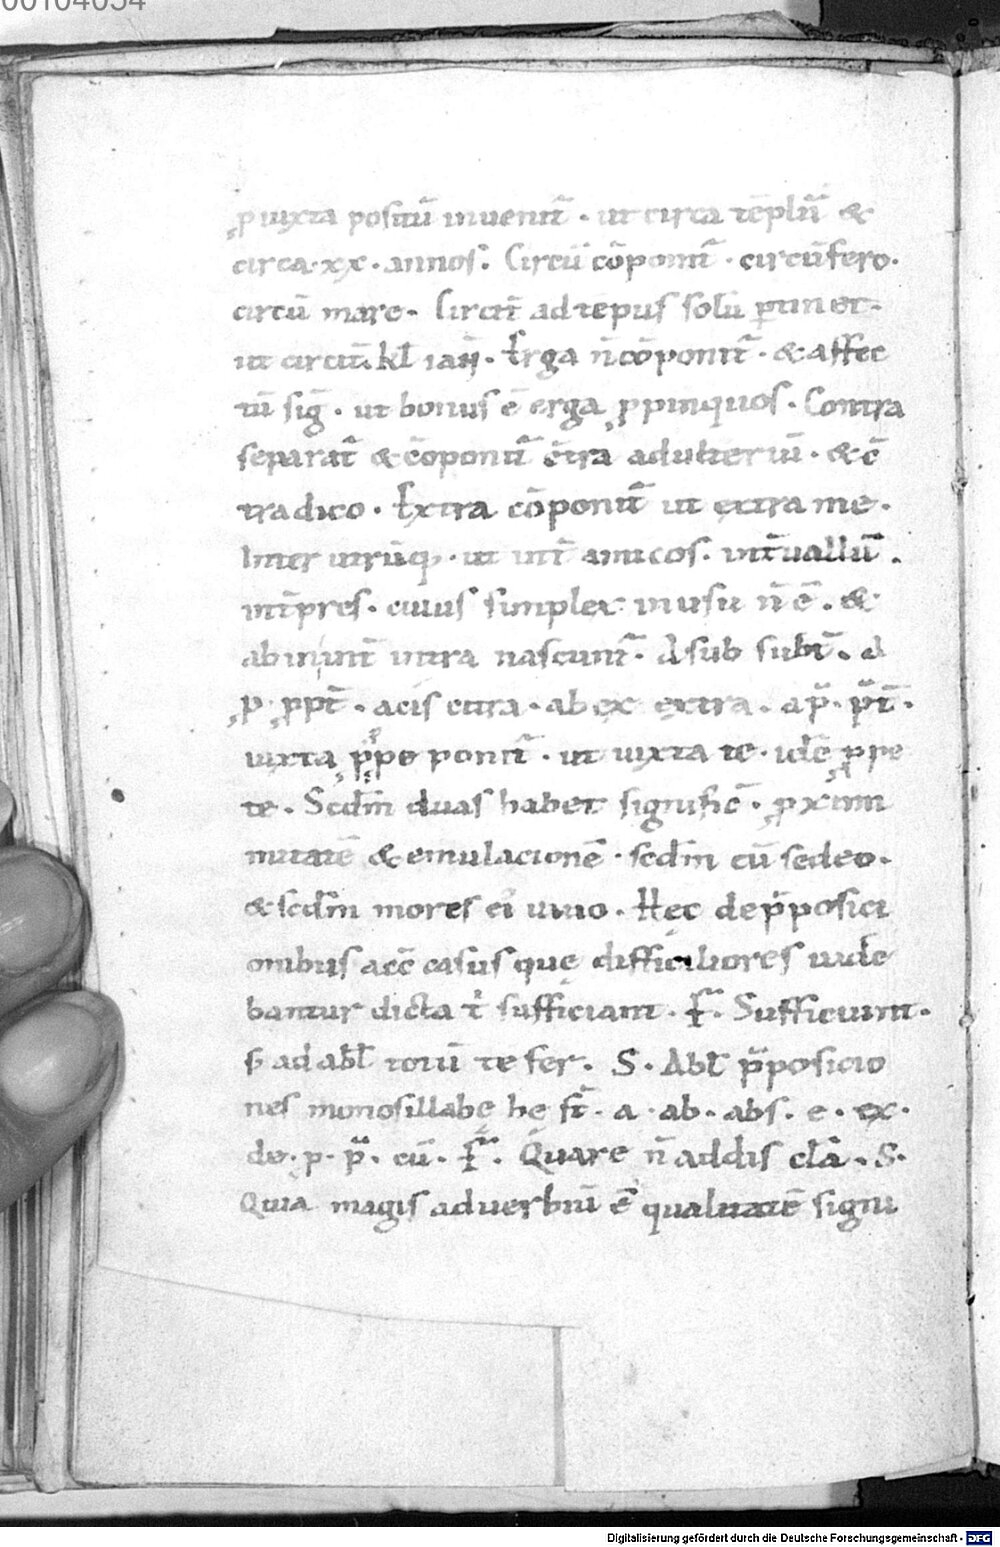 00104054
ꝓ iuxta positū inuenit᷑ · ut circa tēplū &
circa · xx · annos. Circū cōponit᷑ · circūfero ·
circū mare · Circit᷑ ad tēpus solū ꝑtinet ·
ut circit᷑ · kl ian̄ · Erga n̄ cōponit᷑ · & affec
tū siḡ · ut bonus ē erga ꝓpinquos · Contra
separat᷑ & cōponit᷑ c̄tra adulteriū · & c̄
tradico · Extra cōponit᷑ ut extra me ·
Inter utrūq; · ut int̄ amicos · int̄uallū ·
int̄pres · cuius simplex in usu n̄ ē · &
ab in int̄ intra nascunt᷑ · A sub subt̄ · A
ꝓ · ꝓpt̄ · a cis citra · ab ex extra · a p̄ · p̄t̄ ·
iuxta ꝓpe ponit᷑ · ut iuxta te · idē ꝓpe
te · Scdm̄ duas habet signific̄ · ꝓximi
mitatē & emulacionē · scdm̄ eū sedeo ·
& scdm̄ mores ei᷒ uiuo · Hec de p̄posici
onibus acc̄ casus quę difficiliores uide
bantur dicta t᷑ sufficiant · F᷑ · Sufficiunt ·
s; ad abl̄ totū te fer · S · Abl̄ p̄posicio
nes monosillabę hę st̄ · a · ab · abs · e · ex ·
de · p · p̄ · cū · F᷑ · Quare n̄ addis clā · S ·
Quia magis aduerbiū ē qualitatē signi
Digitalisierung gefördert durch die Deutsche Forschungsgemeinschaft - DFG